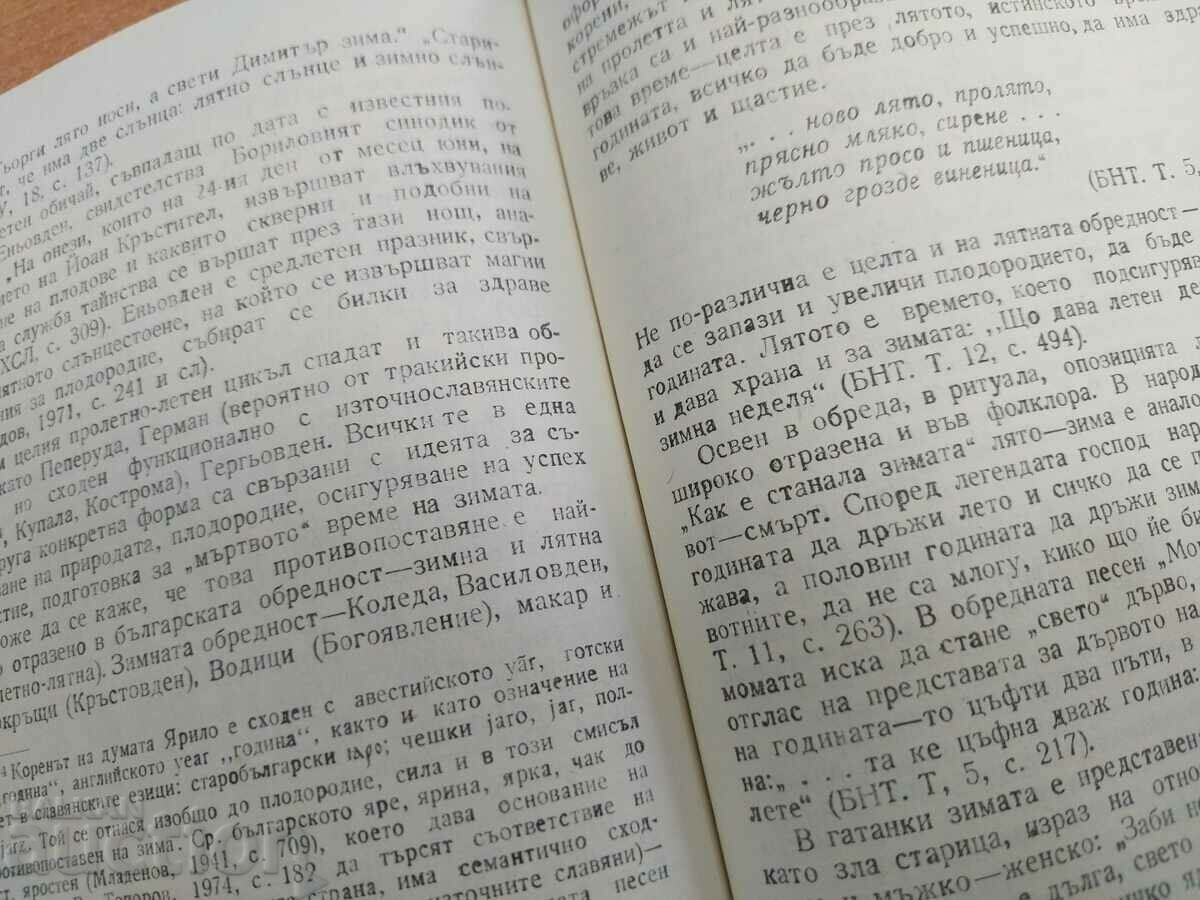 Гьорги лято носи, а свети Димитър зима.“ „Стари-
че има две слънца: лятно слънце и зимно слън-
18, с. 137).
обичай, съвпалащ по дата с известния по-
Еньовден, свидетелства Бориловият синодик от
„На онези, които на 24-ия ден от месец юни, на
на Йоан Кръстител, извършват влъхвувания
на плодове и каквито скверни и подобни на
служба тайнства се вършат през тази нощ, ана-
с. 309). Еньовден е средлетен празник, свър-
слънцестоене, на който се извършват магии
за плодородие, събират се билки за здраве
1971, с. 241 и сл).
целия пролетно-летен цикъл спадат и такива об-
като Пеперуда, Герман (вероятно от тракийски про-
но сходен функционално с източнославянските
Купала, Кострома), Гергьовден. Всички те в една
друга конкретна форма са свързани с идеята за съ-
на природата, плодородие, осигуряване на успех
подготовка за „мъртвото“ време на зимата.
да се каже, че това противопоставяне е най-
отразено в българската обредност—зимна и лятна
Зимната обредност—Коледа, Василовден,
(Кръстовден), Водици (Богоявление), макар и
Коренът на думата Ярило е сходен с авестийското yār, готски
„година“, английското year „година“, както и като означение на
в славянските езици: старобългарски; чешки jaro, jar, пол-
jarz. Той се отнася изобщо до плодородие, сила и в този смисъл
противопоставен на зима. Ср. българското яре, ярина, ярка, чак до
яростен (Младенов, 1941, с. 709), което дава основание на
1974, с. 182 да търсят съответствие на
страна, има семантично сход-
източните славяни)—
песен
корени,
стремежът
на пролетта и
връзка са и най-разнообраз
това време—целта е през лятото, истинското
годината, всичко да бъде добро и успешно, да има здра
ве, живот и щастие.
„. . . ново лято, пролято,
прясно мляко, сирене . . .
жълто просо и пшеница,
черно грозде виненица.“
(БНТ. Т. 5,
Не по-различна е целта и на лятната обредност—
да се запази и увеличи плодородието, да бъде
годината. Лятото е времето, което подсигурява
и дава храна и за зимата: „Що дава летен де
зимна неделя“ (БНТ. Т. 12, с. 494).
Освен в обреда, в ритуала, опозицията л
широко отразена и във фолклора. В народ
„Как е станала зимата“ лято—зима е анало
вот—смърт. Според легендата господ нар
годината да дръжи лето и сичко да се п
жава, а половин годината да дръжи зим
вотните, да не са млогу, кико що йе би
Т. 11, с. 263). В обредната песен „Мо
момата иска да стане „свето“ дърво,
отглас на представата за дървото на
на годината—то цъфти два пъти, в
на:„. . . . та ке цъфна дваж година:
лете“ (БНТ. Т, 5, с. 217).
В гатанки зимата е представен
като зла старица, израз на отно
и мъжко—женско: „Заби н
е дълга, свето